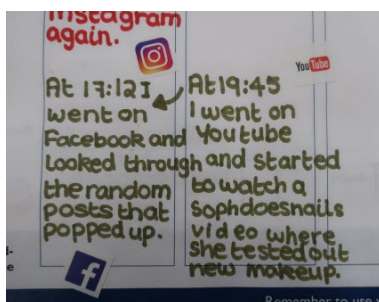 Instagram
again.
At 17:12 I
went on
Facebook and
looked through
the random
posts that
popped up.
You Tube
At 19:45
I went on
Youtube
and started
to watch a
Sophdoesnails
video where
she tested out
new makeup.
Remember to use